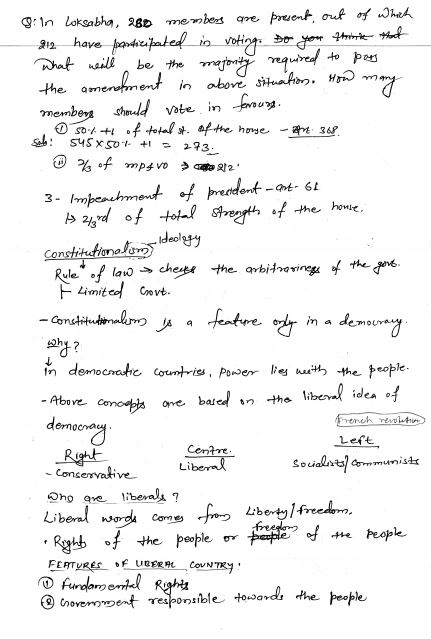 Q: In Loksabha, 280 members are present, out of which
212 have participated in voting. Do you think that
what will be the majority required to pass
the amendment in above situation. How many
members should vote in favour.
① 50% +1 of total st. of the house - Art. 368
Sol: 545 x 50% +1 = 273.
② 2/3 of mp+vo → 212
3- Impeachment of president - art- 61
↳ 2/3rd of total strength of the house.
Constitutionalism → ideology
Rule of law → checks the arbitrariness of the govt.
Limited Govt.
- Constitutionalism is a feature only in a democracy.
Why?
In democratic countries, power lies with the people.
- Above concepts are based on the liberal idea of
democracy.
French revolution
Right Centre. Left
- Conservative Liberal Socialists/Communists
Who are liberals?
Liberal words comes from Liberty/freedom.
• Rights of the people or people freedom of the people
FEATURES OF LIBERAL COUNTRY.
① Fundamental Rights
② Government responsible towards the people